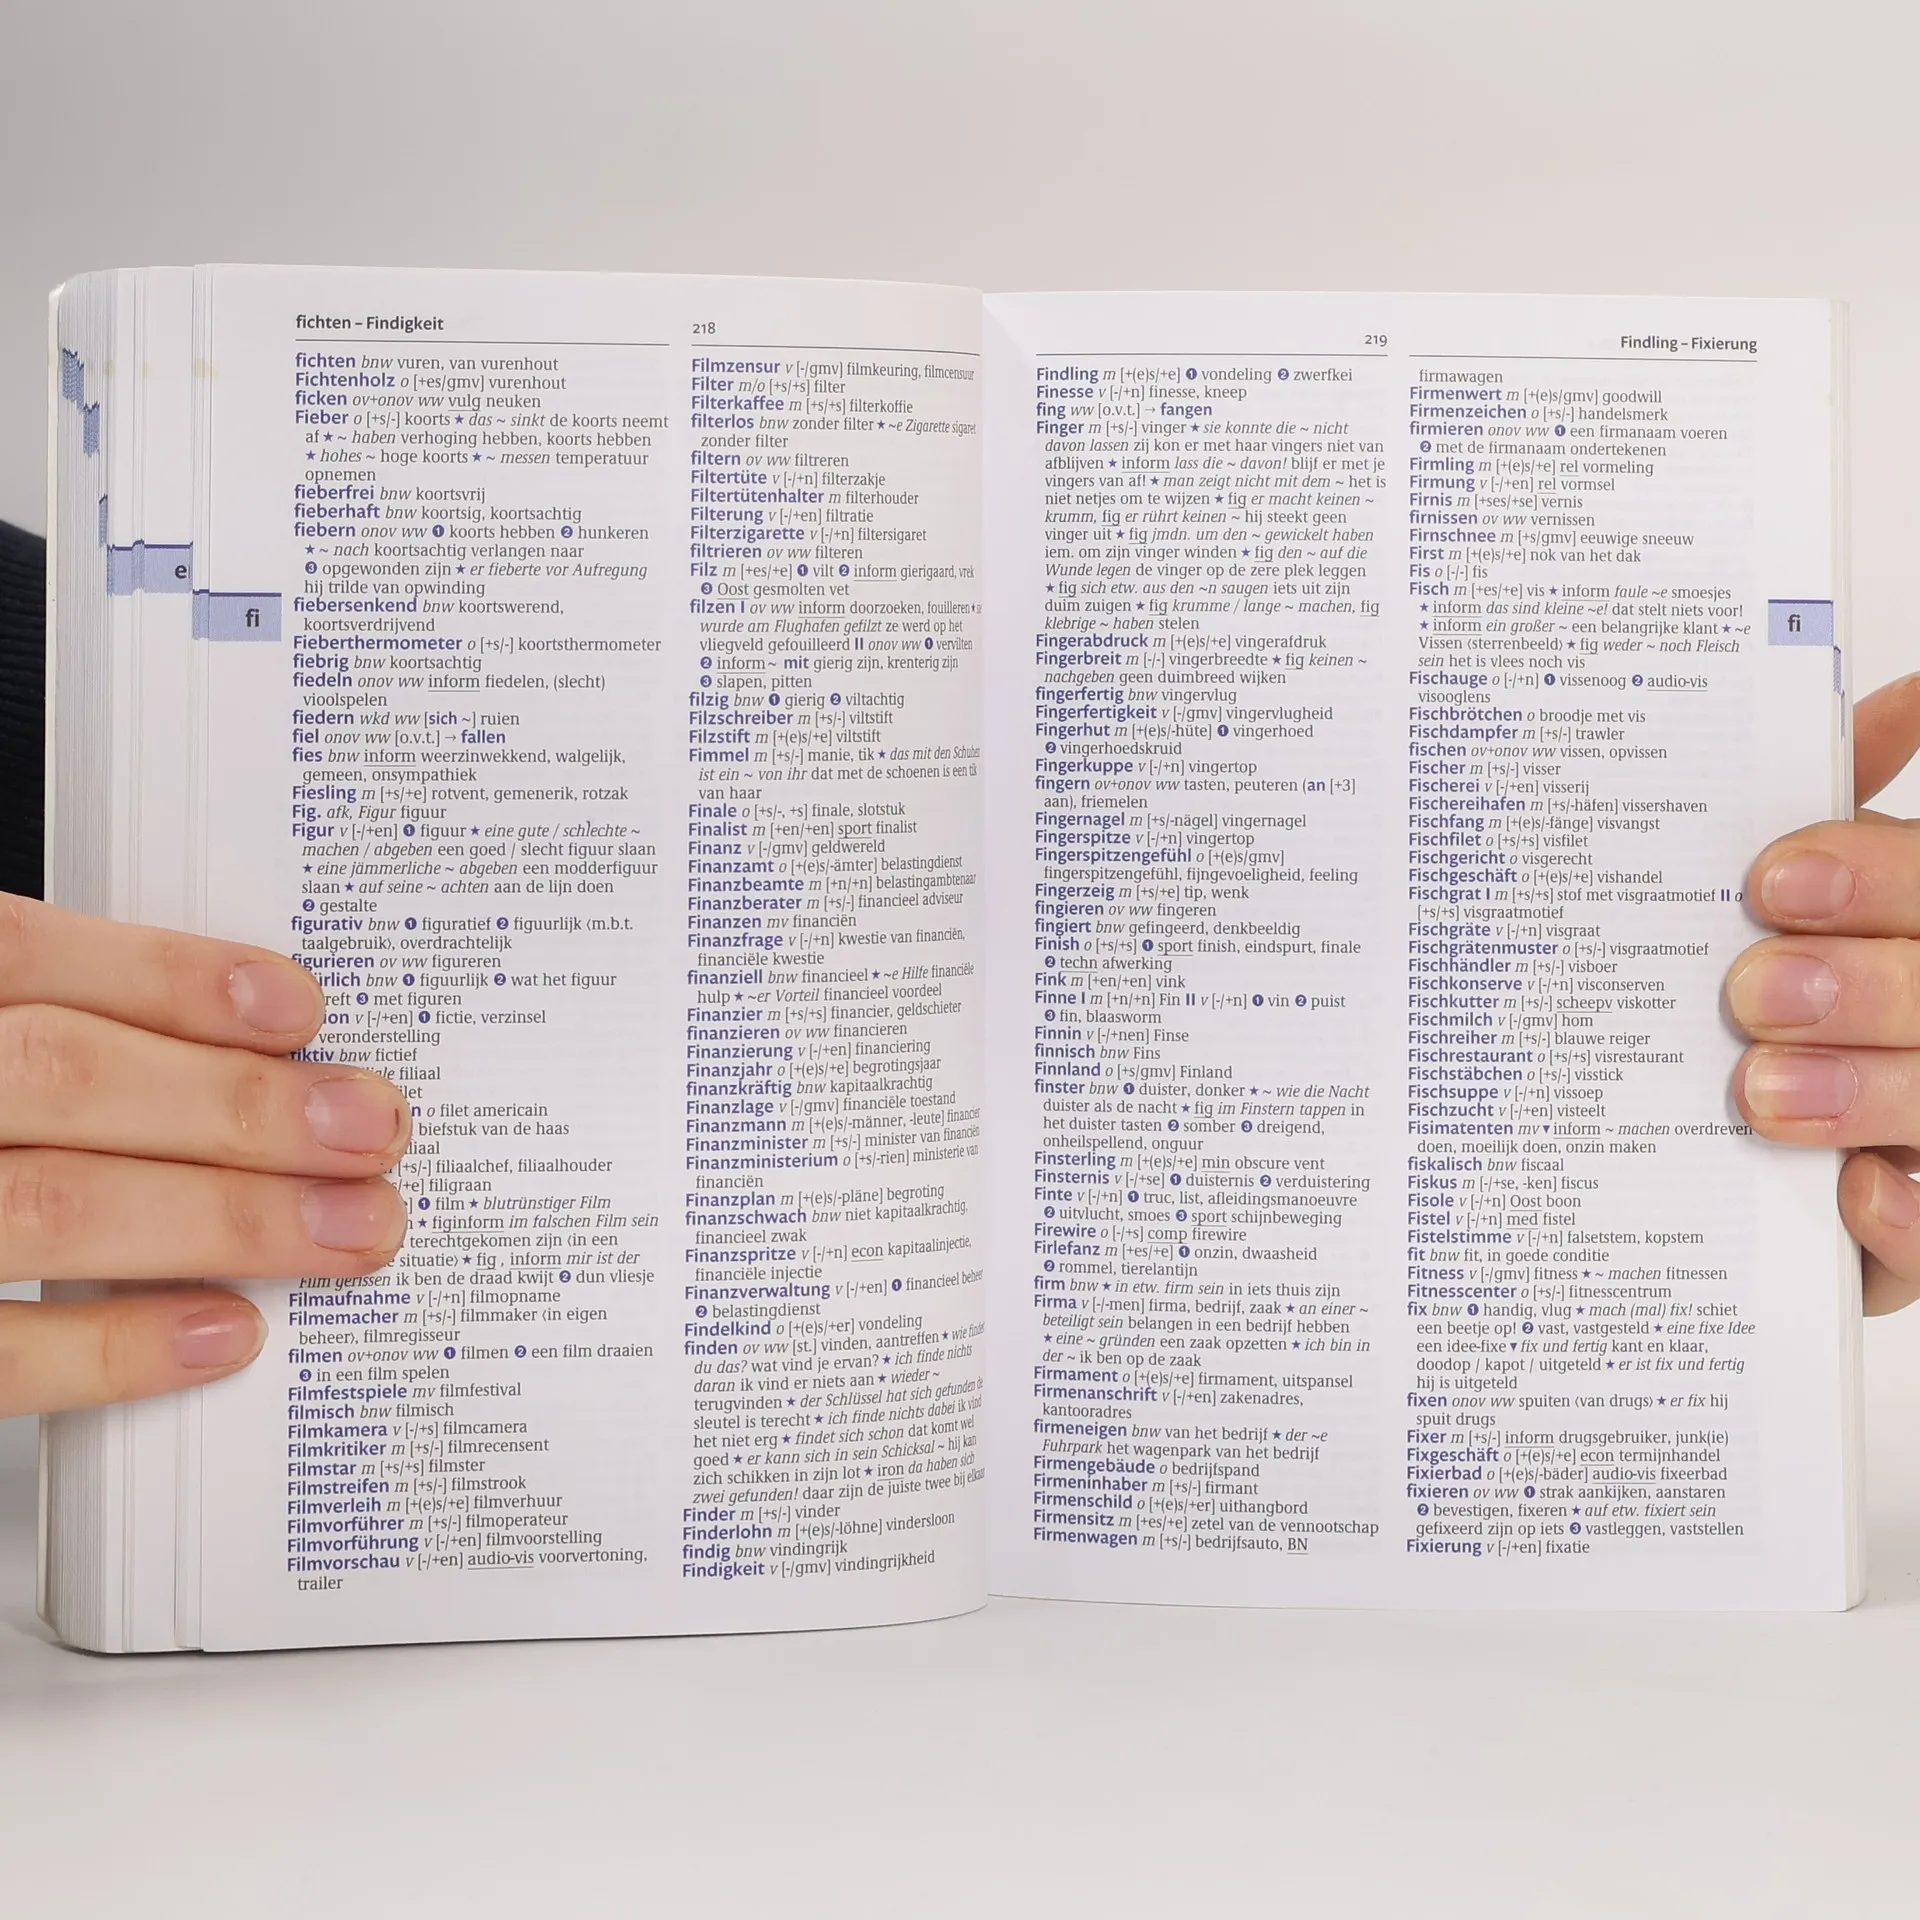 fichten – Findigkeit
fichten bnw vuren, van vurenhout
Fichtenholz o [+es/gmv] vurenhout
ficken ov+onov ww vulg neuken
Fieber o [+s/-] koorts ★ das ~ sinkt de koorts neemt
af ★ ~ haben verhoging hebben, koorts hebben
★ hohes ~ hoge koorts ★ ~ messen temperatuur
opnemen
fieberfrei bnw koortsvrij
fieberhaft bnw koortsig, koortsachtig
fiebern onov ww ❶ koorts hebben ❷ hunkeren
★ ~ nach koortsachtig verlangen naar
❸ opgewonden zijn ★ er fieberte vor Aufregung
hij trilde van opwinding
fiebersenkend bnw koortswerend,
koortsverdrijvend
Fieberthermometer o [+s/-] koortsthermometer
fiebrig bnw koortsachtig
fiedeln onov ww inform fiedelen, (slecht)
vioolspelen
fiedern wkd ww [sich ~] ruien
fiel onov ww [o.v.t.] → fallen
fies bnw inform weerzinwekkend, walgelijk,
gemeen, onsympathiek
Fiesling m [+s/+e] rotvent, gemenerik, rotzak
Fig. afk, Figur figuur
Figur v [-/+en] ❶ figuur ★ eine gute / schlechte ~
machen / abgeben een goed / slecht figuur slaan
★ eine jämmerliche ~ abgeben een modderfiguur
slaan ★ auf seine ~ achten aan de lijn doen
❷ gestalte
figurativ bnw ❶ figuratief ❷ figuurlijk ⟨m.b.t.
taalgebruik⟩, overdrachtelijk
figurieren ov ww figureren
ürlich bnw ❶ figuurlijk ❷ wat het figuur
reft ❸ met figuren
ion v [-/+en] ❶ fictie, verzinsel
veronderstelling
fiktiv bnw fictief
filiaal
filet
n o filet americain
biefstuk van de haas
filiaal
[+s/-] filiaalchef, filiaalhouder
/+e] filigraan
] ❶ film ★ blutrünstiger Film
★ figinform im falschen Film sein
terechtgekomen zijn ⟨in een
situatie⟩ ★ fig , inform mir ist der
Film gerissen ik ben de draad kwijt ❷ dun vliesje
Filmaufnahme v [-/+n] filmopname
Filmemacher m [+s/-] filmmaker ⟨in eigen
beheer⟩, filmregisseur
filmen ov+onov ww ❶ filmen ❷ een film draaien
❸ in een film spelen
Filmfestspiele mv filmfestival
filmisch bnw filmisch
Filmkamera v [-/+s] filmcamera
Filmkritiker m [+s/-] filmrecensent
Filmstar m [+s/+s] filmster
Filmstreifen m [+s/-] filmstrook
Filmverleih m [+(e)s/+e] filmverhuur
Filmvorführer m [+s/-] filmoperateur
Filmvorführung v [-/+en] filmvoorstelling
Filmvorschau v [-/+en] audio-vis voorvertoning,
trailer
218
Filmzensur v [-/gmv] filmkeuring, filmcensuur
Filter m/o [+s/+s] filter
Filterkaffee m [+s/+s] filterkoffie
filterlos bnw zonder filter ★ ~e Zigarette sigaret
zonder filter
filtern ov ww filtreren
Filtertüte v [-/+n] filterzakje
Filtertütenhalter m filterhouder
Filterung v [-/+en] filtratie
Filterzigarette v [-/+n] filtersigaret
filtrieren ov ww filteren
Filz m [+es/+e] ❶ vilt ❷ inform gierigaard, vrek
❸ Oost gesmolten vet
filzen I ov ww inform doorzoeken, fouilleren ★
wurde am Flughafen gefilzt ze werd op het
vliegveld gefouilleerd II onov ww ❶ vervilten
❷ inform ~ mit gierig zijn, krenterig zijn
❸ slapen, pitten
filzig bnw ❶ gierig ❷ viltachtig
Filzschreiber m [+s/-] viltstift
Filzstift m [+(e)s/+e] viltstift
Fimmel m [+s/-] manie, tik ★ das mit den Schuhen
ist ein ~ von ihr dat met de schoenen is een tik
van haar
Finale o [+s/-, +s] finale, slotstuk
Finalist m [+en/+en] sport finalist
Finanz v [-/gmv] geldwereld
Finanzamt o [+(e)s/-ämter] belastingdienst
Finanzbeamte m [+n/+n] belastingambtenaar
Finanzberater m [+s/-] financieel adviseur
Finanzen mv financiën
Finanzfrage v [-/+n] kwestie van financiën,
financiële kwestie
finanziell bnw financieel ★ ~e Hilfe financiële
hulp ★ ~er Vorteil financieel voordeel
Finanzier m [+s/+s] financier, geldschieter
finanzieren ov ww financieren
Finanzierung v [-/+en] financiering
Finanzjahr o [+(e)s/+e] begrotingsjaar
finanzkräftig bnw kapitaalkrachtig
Finanzlage v [-/gmv] financiële toestand
Finanzmann m [+(e)s/-männer, -leute] financier
Finanzminister m [+s/-] minister van financiën
Finanzministerium o [+s/-rien] ministerie van
financiën
Finanzplan m [+(e)s/-pläne] begroting
finanzschwach bnw niet kapitaalkrachtig,
financieel zwak
Finanzspritze v [-/+n] econ kapitaalinjectie,
financiële injectie
Finanzverwaltung v [-/+en] ❶ financieel beheer
❷ belastingdienst
Findelkind o [+(e)s/+er] vondeling
finden ov ww [st.] vinden, aantreffen ★ wie findest
du das? wat vind je ervan? ★ ich finde nichts
daran ik vind er niets aan ★ wieder ~
terugvinden ★ der Schlüssel hat sich gefunden de
sleutel is terecht ★ ich finde nichts dabei ik vind
het niet erg ★ findet sich schon dat komt wel
goed ★ er kann sich in sein Schicksal ~ hij kan
zich schikken in zijn lot ★ iron da haben sich
zwei gefunden! daar zijn de juiste twee bij elkaar
Finder m [+s/-] vinder
Finderlohn m [+(e)s/-löhne] vindersloon
findig bnw vindingrijk
Findigkeit v [-/gmv] vindingrijkheid
fi
219
Findling m [+(e)s/+e] ❶ vondeling ❷ zwerfkei
Finesse v [-/+n] finesse, kneep
fing ww [o.v.t.] → fangen
Finger m [+s/-] vinger ★ sie konnte die ~ nicht
davon lassen zij kon er met haar vingers niet van
afblijven ★ inform lass die ~ davon! blijf er met je
vingers van af! ★ man zeigt nicht mit dem ~ het is
niet netjes om te wijzen ★ fig er macht keinen ~
krumm, fig er rührt keinen ~ hij steekt geen
vinger uit ★ fig jmdn. um den ~ gewickelt haben
iem. om zijn vinger winden ★ fig den ~ auf die
Wunde legen de vinger op de zere plek leggen
★ fig sich etw. aus den ~n saugen iets uit zijn
duim zuigen ★ fig krumme / lange ~ machen, fig
klebrige ~ haben stelen
Fingerabdruck m [+(e)s/+e] vingerafdruk
Fingerbreit m [-/-] vingerbreedte ★ fig keinen ~
nachgeben geen duimbreed wijken
fingerfertig bnw vingervlug
Fingerfertigkeit v [-/gmv] vingervlugheid
Fingerhut m [+(e)s/-hüte] ❶ vingerhoed
❷ vingerhoedskruid
Fingerkuppe v [-/+n] vingertop
fingern ov+onov ww tasten, peuteren (an [+3]
aan), friemelen
Fingernagel m [+s/-nägel] vingernagel
Fingerspitze v [-/+n] vingertop
Fingerspitzengefühl o [+(e)s/gmv]
fingerspitzengefühl, fijngevoeligheid, feeling
Fingerzeig m [+s/+e] tip, wenk
fingieren ov ww fingeren
fingiert bnw gefingeerd, denkbeeldig
Finish o [+s/+s] ❶ sport finish, eindspurt, finale
❷ techn afwerking
Fink m [+en/+en] vink
Finne I m [+n/+n] Fin II v [-/+n] ❶ vin ❷ puist
❸ fin, blaasworm
Finnin v [-/+nen] Finse
finnisch bnw Fins
Finnland o [+s/gmv] Finland
finster bnw ❶ duister, donker ★ ~ wie die Nacht
duister als de nacht ★ fig im Finstern tappen in
het duister tasten ❷ somber ❸ dreigend,
onheilspellend, onguur
Finsterling m [+(e)s/+e] min obscure vent
Finsternis v [-/+se] ❶ duisternis ❷ verduistering
Finte v [-/+n] ❶ truc, list, afleidingsmanoeuvre
❷ uitvlucht, smoes ❸ sport schijnbeweging
Firewire o [-/+s] comp firewire
Firlefanz m [+es/+e] ❶ onzin, dwaasheid
❷ rommel, tierelantijn
firm bnw ★ in etw. firm sein in iets thuis zijn
Firma v [-/-men] firma, bedrijf, zaak ★ an einer ~
beteiligt sein belangen in een bedrijf hebben
★ eine ~ gründen een zaak opzetten ★ ich bin in
der ~ ik ben op de zaak
Firmament o [+(e)s/+e] firmament, uitspansel
Firmenanschrift v [-/+en] zakenadres,
kantooradres
firmeneigen bnw van het bedrijf ★ der ~e
Fuhrpark het wagenpark van het bedrijf
Firmengebäude o bedrijfspand
Firmeninhaber m [+s/-] firmant
Firmenschild o [+(e)s/+er] uithangbord
Firmensitz m [+es/+e] zetel van de vennootschap
Firmenwagen m [+s/-] bedrijfsauto, BN
Findling – Fixierung
firmawagen
Firmenwert m [+(e)s/gmv] goodwill
Firmenzeichen o [+s/-] handelsmerk
firmieren onov ww ❶ een firmanaam voeren
❷ met de firmanaam ondertekenen
Firmling m [+(e)s/+e] rel vormeling
Firmung v [-/+en] rel vormsel
Firnis m [+ses/+se] vernis
firnissen ov ww vernissen
Firnschnee m [+s/gmv] eeuwige sneeuw
First m [+(e)s/+e] nok van het dak
Fis o [-/-] fis
Fisch m [+es/+e] vis ★ inform faule ~e smoesjes
★ inform das sind kleine ~e! dat stelt niets voor!
★ inform ein großer ~ een belangrijke klant ★ ~e
Vissen ⟨sterrenbeeld⟩ ★ fig weder ~ noch Fleisch
sein het is vlees noch vis
Fischauge o [-/+n] ❶ vissenoog ❷ audio-vis
visooglens
Fischbrötchen o broodje met vis
Fischdampfer m [+s/-] trawler
fischen ov+onov ww vissen, opvissen
Fischer m [+s/-] visser
Fischerei v [-/+en] visserij
Fischereihafen m [+s/-häfen] vissershaven
Fischfang m [+(e)s/-fänge] visvangst
Fischfilet o [+s/+s] visfilet
Fischgericht o visgerecht
Fischgeschäft o [+(e)s/+e] vishandel
Fischgrat I m [+s/+s] stof met visgraatmotief II o
[+s/+s] visgraatmotief
Fischgräte v [-/+n] visgraat
Fischgrätenmuster o [+s/-] visgraatmotief
Fischhändler m [+s/-] visboer
Fischkonserve v [-/+n] visconserven
Fischkutter m [+s/-] scheepv viskotter
Fischmilch v [-/gmv] hom
Fischreiher m [+s/-] blauwe reiger
Fischrestaurant o [+s/+s] visrestaurant
Fischstäbchen o [+s/-] visstick
Fischsuppe v [-/+n] vissoep
Fischzucht v [-/+en] visteelt
Fisimatenten mv ▾ inform ~ machen overdreven
doen, moeilijk doen, onzin maken
fiskalisch bnw fiscaal
Fiskus m [-/+se, -ken] fiscus
Fisole v [-/+n] Oost boon
Fistel v [-/+n] med fistel
Fistelstimme v [-/+n] falsetstem, kopstem
fit bnw fit, in goede conditie
Fitness v [-/gmv] fitness ★ ~ machen fitnessen
Fitnesscenter o [+s/-] fitnesscentrum
fix bnw ❶ handig, vlug ★ mach (mal) fix! schiet
een beetje op! ❷ vast, vastgesteld ★ eine fixe Idee
een idee-fixe ▾ fix und fertig kant en klaar,
doodop / kapot / uitgeteld ★ er ist fix und fertig
hij is uitgeteld
fixen onov ww spuiten ⟨van drugs⟩ ★ er fixt hij
spuit drugs
Fixer m [+s/-] inform drugsgebruiker, junk(ie)
Fixgeschäft o [+(e)s/+e] econ termijnhandel
Fixierbad o [+(e)s/-bäder] audio-vis fixeerbad
fixieren ov ww ❶ strak aankijken, aanstaren
❷ bevestigen, fixeren ★ auf etw. fixiert sein
gefixeerd zijn op iets ❸ vastleggen, vaststellen
Fixierung v [-/+en] fixatie
fi